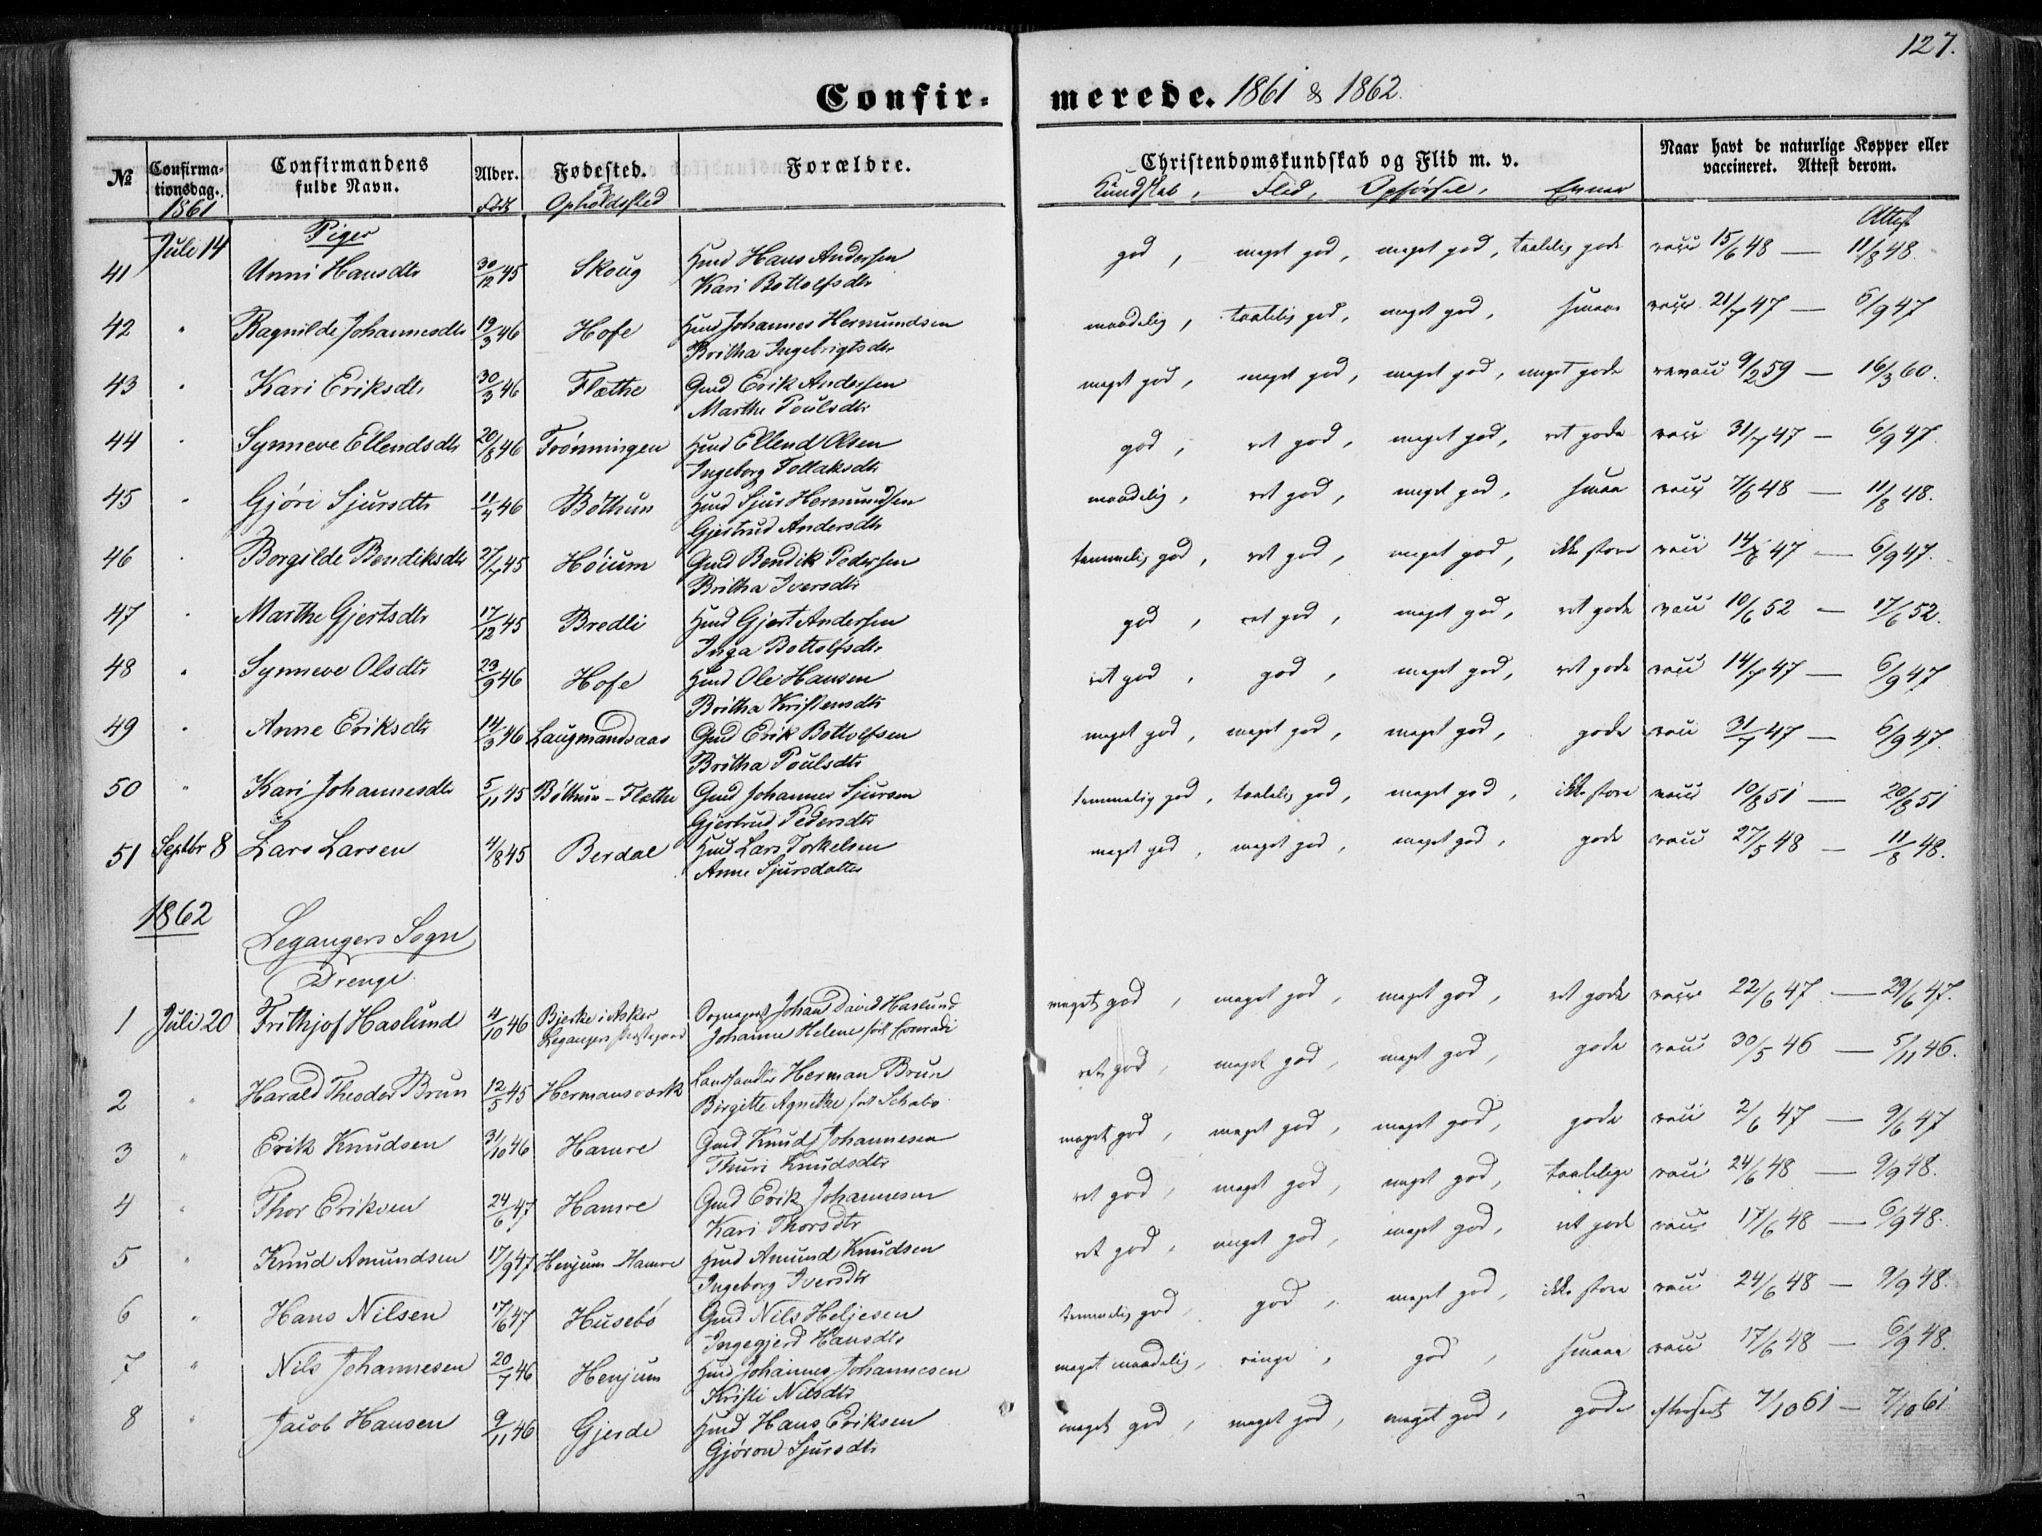 127.
Confir- merede. 1861 & 1862.
№ Confirma-tionsdag. Confirmandens fulde Navn. Alder. Fødested. Forældre. Christendomskundskab og Flid m. v. Naar havt de naturlige Kopper eller vaccineret. Attest derom.
1861 Født & Opholdssted Kundskab, Flid, Opførsel, Evner Attest
Juli 14 Piger
41 Unni Hansdtr 30/12 45 Skoug Hmd Hans Andersen god, meget god, meget god, taalelig gode vacc 15/6 48 — 11/8 48.
Kari Bottolfsdtr
42 " Ragnilde Johannesdtr 19/3 46 Hofe Hmd Johannes Hermundsen maadelig, taalelig god, meget god, smaae vacc 21/7 47 — 6/9 47
Britha Ingebrigtsdtr
43 " Kari Eriksdtr 30/3 46 Flæthe Gmd Erik Andersen meget god, meget god, meget god, meget gode revacc 9/2 59 — 16/3 60.
Marthe Poulsdtr
44 " Synneve Ellendsdtr 20/8 46 Trønningen Hmd Ellend Olsen god, ret god, meget god, ret gode vacc 31/7 47 — 6/9 47.
Ingeborg Tollaksdtr
45 " Gjøri Sjursdtr 11/4 46 Bøthun Hmd Sjur Hermundsen maadelig, ret god, meget god, smaa vacc 7/6 48 — 11/8 48.
Gjertrud Andersdtr
46 " Borgilde Bendiksdtr 27/7 45 Høium Gmd Bendik Pedersen temmelig god, ret god, meget god, ikke store vacc 14/7 47 — 6/9 47.
Britha Iversdtr
47 " Marthe Gjertsdtr 17/12 45 Bredli Hmd Gjert Andersen god, ret god, meget god, ret gode vacc 10/6 52 — 17/6 52.
Inga Bottolfsdtr
48 " Synneve Olsdtr 23/9 46 Hofe Hmd Ole Hansen ret god, god, meget god, ret gode vacc 14/7 47 — 6/9 47
Britha Kristensdtr
49 " Anne Eriksdtr 14/3 46 Laugmandsaas Gmd Erik Bottolfsen meget god, meget god, meget god, gode vacc 31/7 47 — 6/9 47.
Britha Poulsdtr
50 " Kari Johannesdtr 5/11 45 Bøthun-Flæthe Gmd Johannes Sjursen temmelig god, taalelig god, meget god, ikke store vacc 10/8 51 — 20/8 51
Gjertrud Pedersdtr
51 Septbr 8 Lars Larsen 4/8 45 Berdal Hmd Lars Torkelsen meget god, meget god, meget god, gode vacc 27/5 48 — 11/8 48.
Anne Sjursdatter
1862
Legangers Sogn
Drenge.
1 Juli 20 Frithjof Haslund 4/10 46 Bjerke i Asker Sognepræst Johan David Haslund meget god, meget god, meget god, ret gode vacc 22/6 47. — 29/6 47.
Legangers Præstegaard Johanne Helene født Conradi
2 " Harald Theodor Brun 12/5 45 Hermansværk Landhandler Herman Brun ret god, meget god, meget god, gode vacc 30/5 46 — 5/11 46.
Birgitte Agnethe født Schabo
3 " Erik Knudsen 31/10 46 Hamre Gmd Knud Johannesen meget god, meget god, meget god, gode vacc 2/6 47 — 9/6 47
Thuri Knudsdtr
4 " Thor Eriksen 24/6 47 Hamre Gmd Erik Johannesen ret god, meget god, meget god, taalelige vacc 24/6 48 — 9/9 48.
Kari Thorsdtr
5 " Knud Amundsen 17/9 47 Henjum-Hamre Hmd Amund Knudsen ret god, meget god, meget god, ret gode vacc 17/6 48 — 6/9 48.
Ingeborg Iversdtr
6 " Hans Nilsen 17/6 47 Husebø Gmd Nils Heljesen temmelig god, god, meget god, ikke store vacc 24/6 48 — 9/9 48.
Ingegjerd Hansdtr
7 " Nils Johannesen 20/7 46 Henjum Hmd Johannes Johannesen meget maadelig, ringe, god, smaaa vacc 17/6 48 — 6/9 48.
Kristi Nilsdtr
8 " Jacob Hansen 9/11 46 Gjerde Hmd Hans Eriksen meget god, meget god, meget god, gode 7/10 61 — 7/10 61
Gjøron Sjursdtr